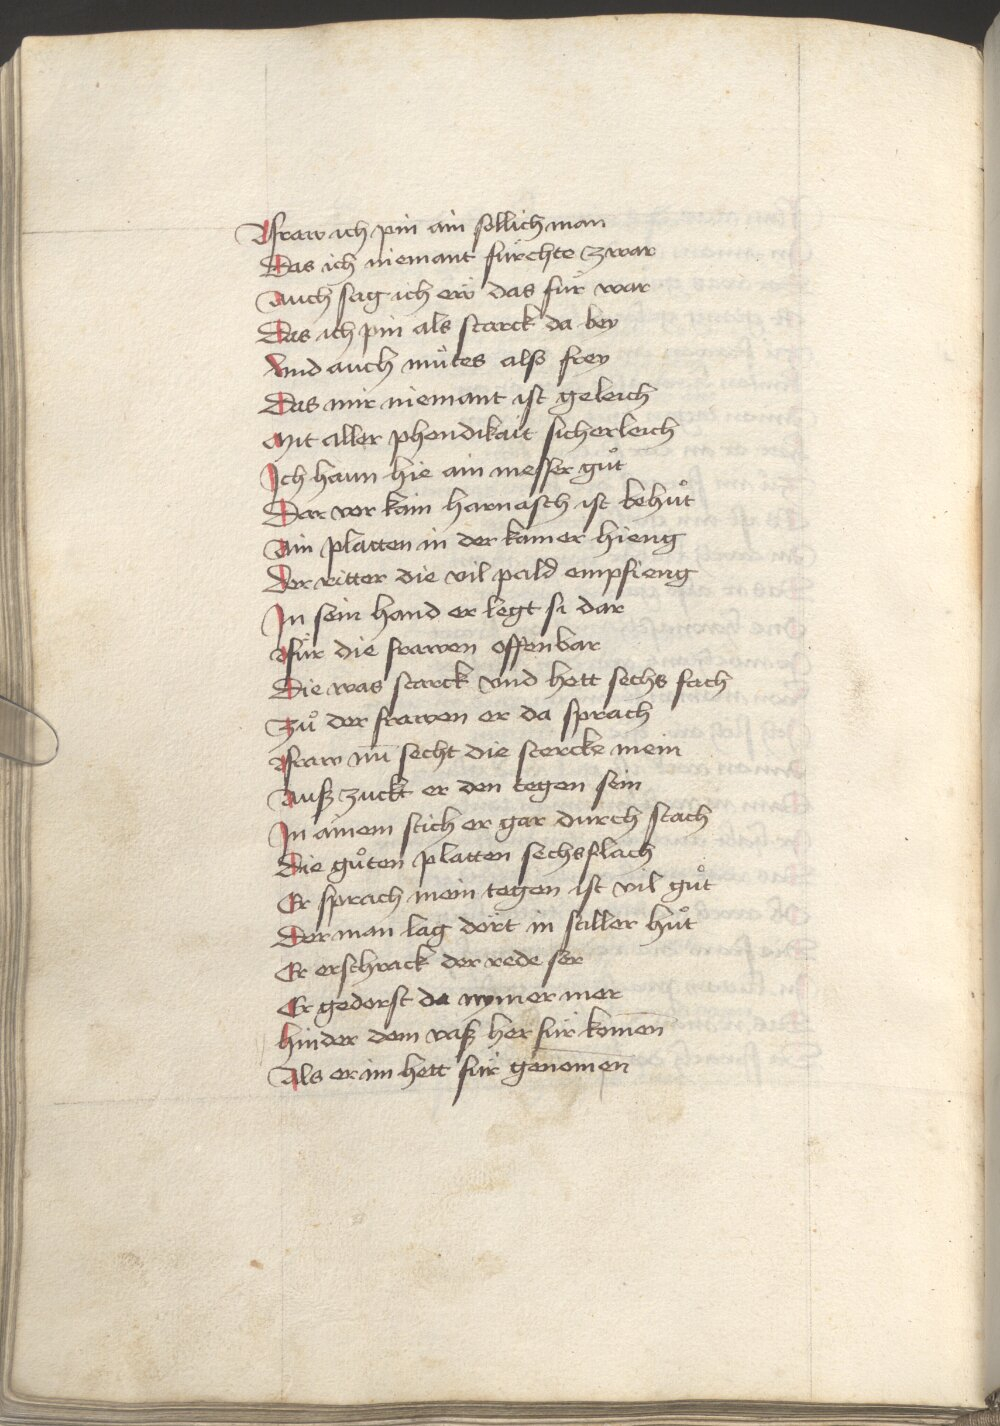 Fraw ich pin ain sollich man
Das ich niemant fürchte zwar
Auch sag ich eẅ das für war
Das ich pin als starck da bey
Vnd auch můtes alss frey
Das mir niemant ist geleich
Mit aller phendikait sicherleich
Ich hann hie ain messer gůt
Dar vor kain harnasch ist behůt
Ain platten in der kamer hieng
Der ritter die vil pald empfieng
In sein hand er legt si dar
Für die frawen offenbar
Die was starck vnd hett sechs fach
Zů der frawen er da sprach
Fraw nu̅ secht die stercke mein
Auß zuckt er den tegen sein
In ainem stich er gar durch stach
Die gůten platten sechsflach
Er sprach mein tegen ist vil gůt
Der man lag dört in stiller hůt
Er erschrack der rede ser
Er gedorst da nymer mer
hinder dem vaß her für komen̅
Als er im hett für genomen̅